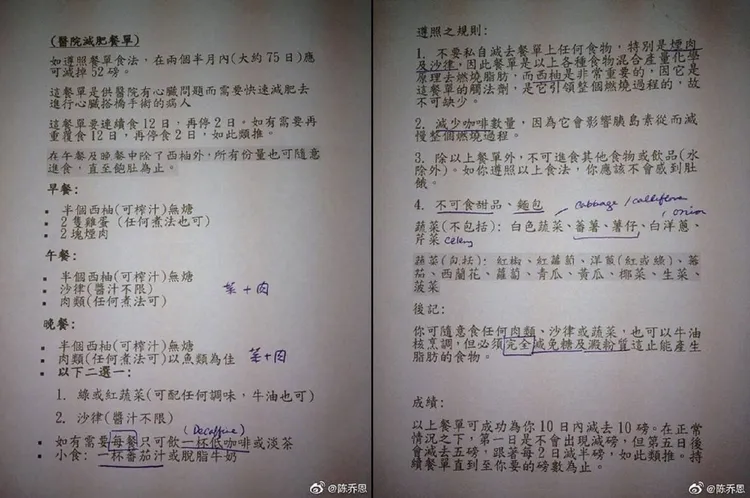 (醫院減肥餐單)
如遵照餐單食法，在兩個半月內(大約75日)應
可減掉52磅。
這餐單是供醫院有心臟問題而需要快速減肥去
進行心臟搭橋手術的病人
這餐單要連續食12日，再停2日。如有需要再
重覆食12日，再停食2日，如此類推。
在午餐及晚餐中除了西柚外，所有份量也可隨意
進食，直至飽肚為止。
早餐:
▪ 半個西柚(可榨汁)無糖
▪ 2隻雞蛋 (任何煮法也可)
▪ 2塊煙肉
午餐:
▪ 半個西柚(可榨汁)無糖
▪ 沙律(醬汁不限)
▪ 肉類(任何煮法可)
菜+肉
晚餐:
▪ 半個西柚(可榨汁)無糖
▪ 肉類(任何煮法可)以魚類為佳 菜+肉
▪ 以下二選一:
1. 綠或紅蔬菜(可配任何調味，牛油也可)
2. 沙律(醬汁不限)
(Decaffeine)
▪ 如有需要每餐只可飲一杯低咖啡或淡茶
▪ 小食: 一杯蕃茄汁或脫脂牛奶
@陈乔恩
遵照之規則:
1. 不要私自減去餐單上任何食物，特別是煙肉
及沙律，因此餐單是以上各種食物混合產量化學
原理去燃燒脂肪，而西柚是非常重要的，因它是
這餐單的觸法劑，是它引領整個燃燒過程的，故
不可缺少。
2. 減少咖啡數量，因為它會影響胰島素從而減
慢整個燃燒過程。
3. 除以上餐單外，不可進食其他食物或飲品(水
除外)。如你遵照以上食法，你應該不會感到肚
餓。
4. 不可食甜品、麵包
cabbage/califlower
onion
蔬菜(不包括): 白色蔬菜、蕃薯、薯仔、白洋蔥、
芹菜 celery
蔬菜(可包括): 紅椒、紅蘿蔔、洋蔥(紅或綠)、蕃
茄、西蘭花、蘿蔔、青瓜、黃瓜、椰菜、生菜、
菠菜
後記:
你可隨意食任何肉類、沙律或蔬菜，也可以牛油
核烹調，但必須完全減免糖及澱粉質這止能產生
脂肪的食物。
成績:
以上餐單可成功為你10日內減去10磅。在正常
情況之下，第一日是不會出現減磅，但第五日後
會減去五磅，跟著每2日減半磅，如此類推。持
續餐單直到至你要的磅數為止。
@陈乔恩